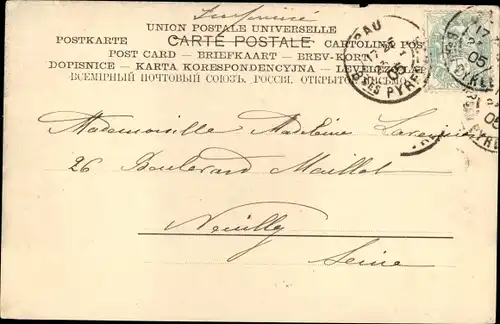 Imprimé
UNION POSTALE UNIVERSELLE
POSTKARTE CARTE POSTALE CARTOLINA POS
POST CARD — BRIEFKAART — BREV-KORT
DOPISNICE — KARTA KORESPONDENCYJNA — LEVELEZ
ВСЕМІРНЫЙ ПОЧТОВЫЙ СОЮЗЪ. РОССІЯ. ОТКРЫТОЕ ПИСЬМО
PAU
17
05
BSES PYRE
17
05
Mademoiselle Madeleine
26 Boulevard Maillot
Neuilly
Seine